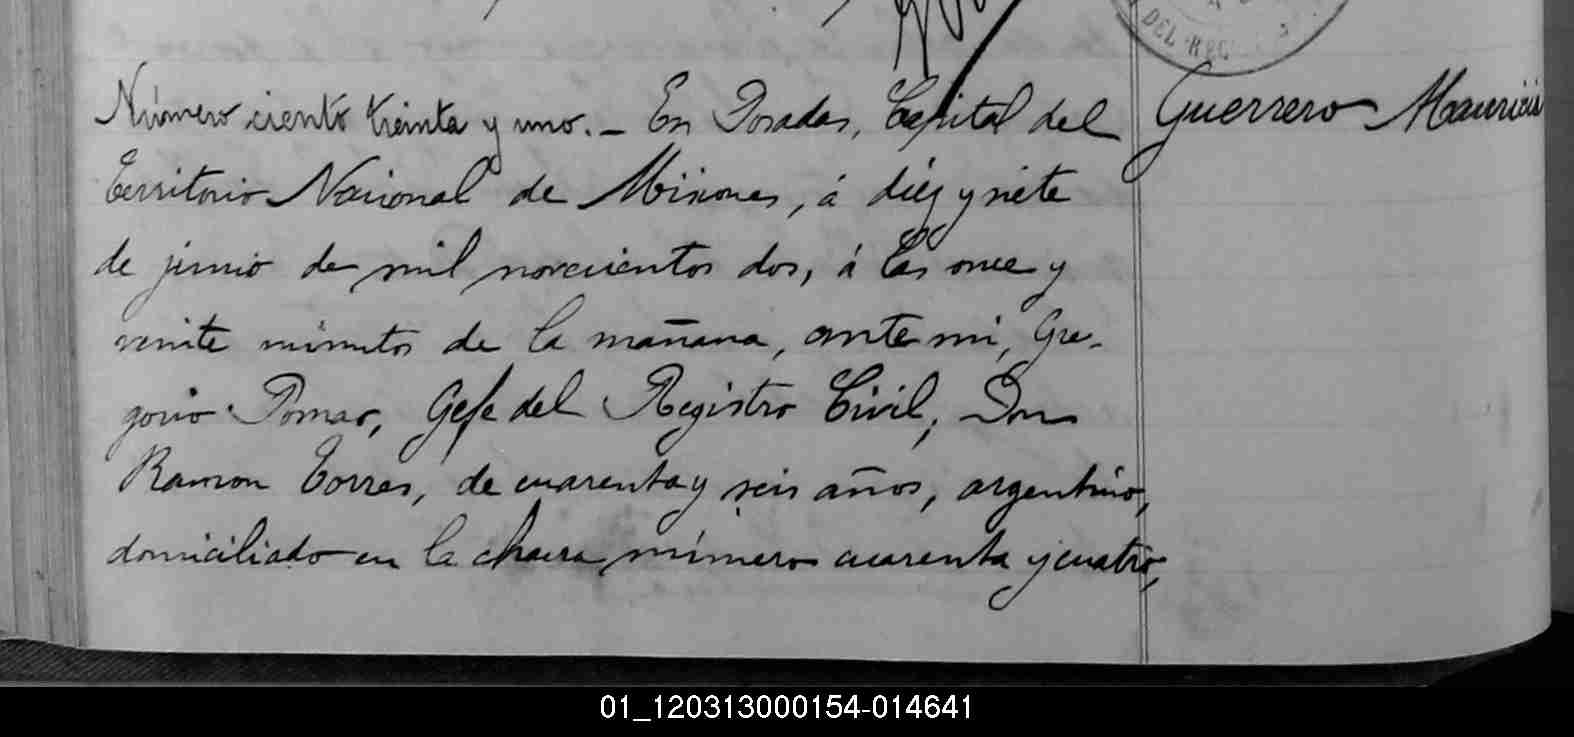 DEL REG
Número ciento treinta y uno.— En Posadas, Capital del
Guerrero Mauricio
Territorio Nacional de Misiones, á diez y siete
de junio de mil novecientos dos, á las once y
veinte minutos de la mañana, ante mi, Gre-
gorio Pomar, Gefe del Registro Civil, Don
Ramon Torres, de cuarenta y seis años, argentino,
domiciliado en la chacra número cuarenta y cuatro,
01_120313000154-014641